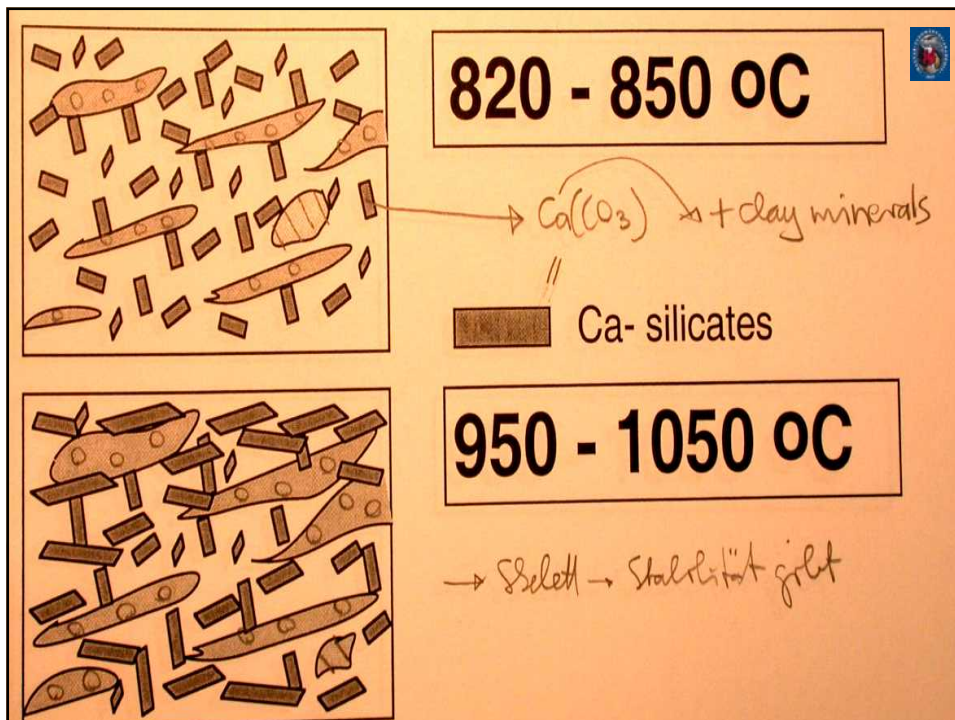 820 - 850 oC
Ca(CO3) + clay minerals
Ca- silicates
950 - 1050 oC
→ Skelett → Stabilität gibt